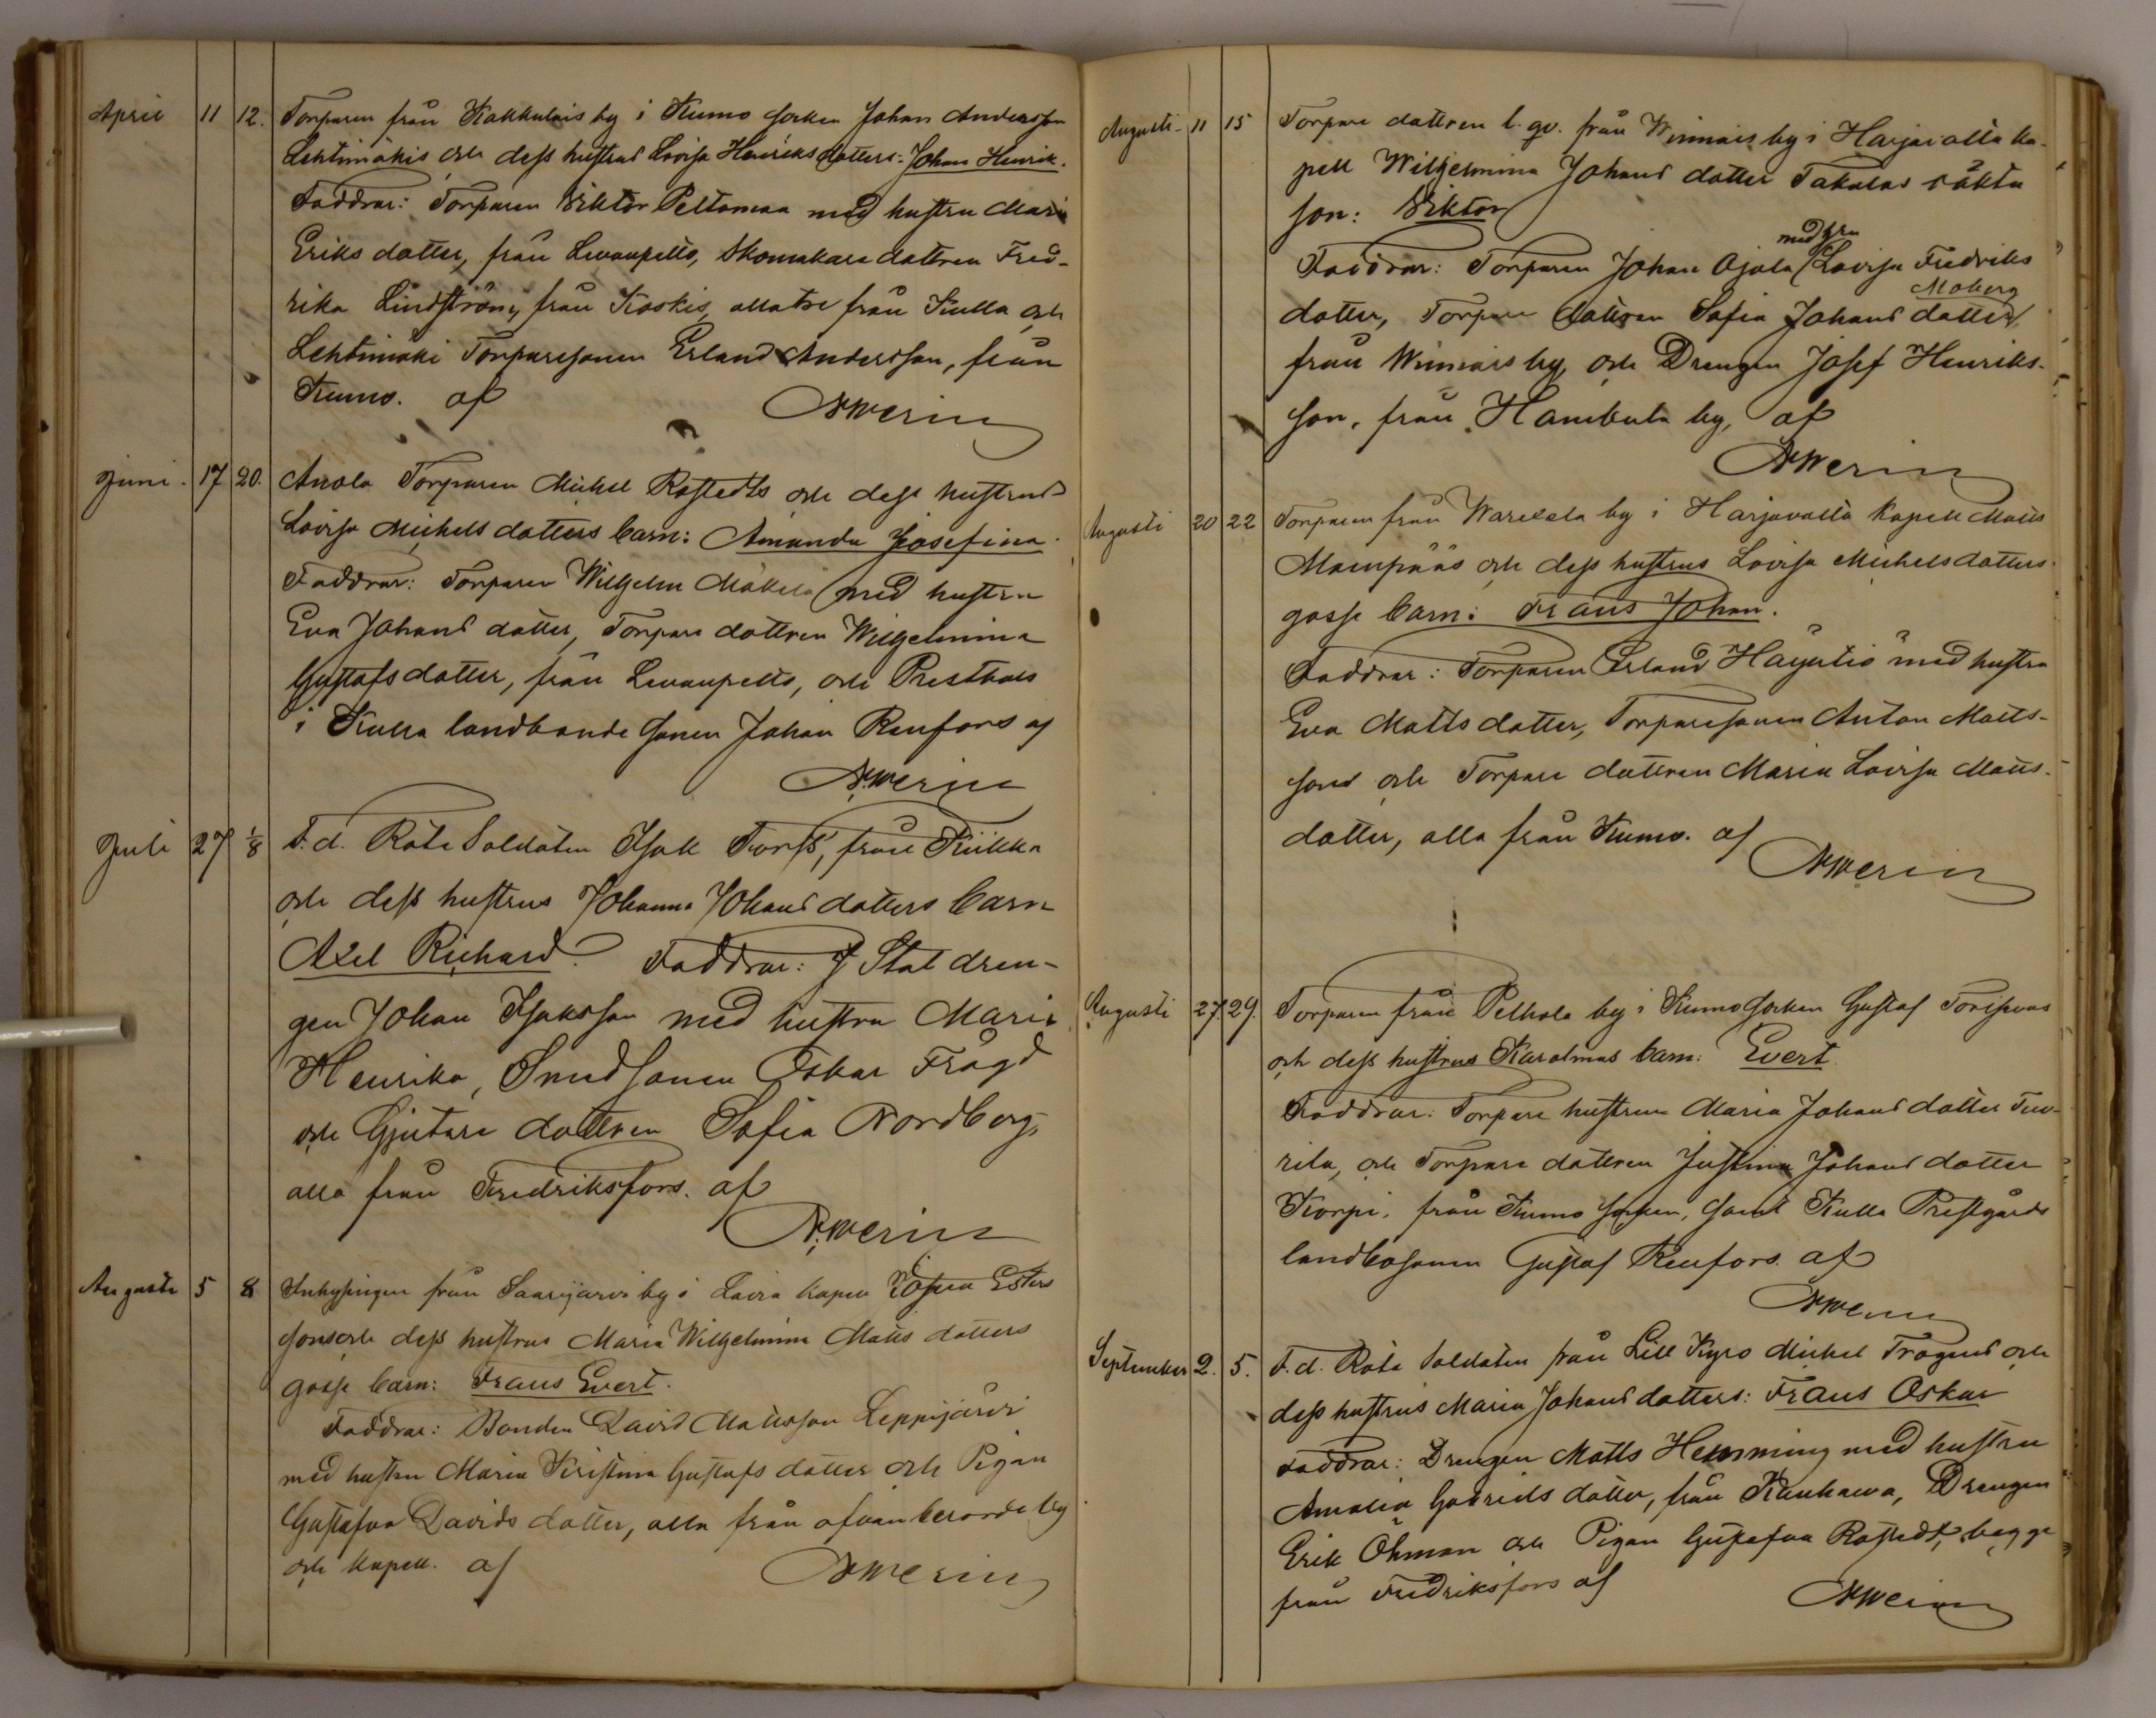 April 11 12. Torparen från Kakkulais by i Kumo socken Johan Andersson
Lehtimäkis och dess hustrus Lovisa Henriksdotters: Johan Henrik.
Faddrar: Torparen Viktor Peltomaa med hustru Maria
Eriks dotter, från Levanpelto, Skomakare dottren Fred-
rika Lindström, från Koskis, alla tre från Kulla och
Lehtimäki Torparesonen Erland Andersson, från
Kumo. af
Juni. 17 20. Anola Torparen Mickel Rostedts och dess hustrus
Lovisa Mickels dotters barn: Amanda Josefina.
Faddrar: Torparen Wilhelm Mäkelä med hustru
Eva Johans dotter, Torpare dottren Wilhelmina
Gustafs dotter, från Levanpelto, och Presthols
i Kulla landbonde sonen Johan Renfors af
Juli 27 1/8 F.d. Rote Soldaten Isak Torss, från Kiikka
och dess hustrus Johanna Johans dotters barn
Axel Richard. Faddrar: Stat dren-
gen Johan Isaksson med hustru Maria
Henrika, Smed sonen Oskar Frågd
och Gjutare dottren Sofia Nordberg,
alla från Fredriksfors. af
Augusti 5 8 Inhysingen från Saarijärvi by i Lavia kapell
sons och dess hustrus Maria Wilhelmina Matts dotters
gosse barn: Frans Evert.
Faddrar: Bonden David Mattsson Leppijärvi
med hustru Maria Kristina Gustafs dotter och Pigan
Gustafva Davids dotter, alla från ofvanberörde by
och kapell. af
Augusti 11 15 Torpare dottren l. qv. från Winnais by i Harjavalta ka-
pell Wilhelmina Johans dotter Takalas oäkta
son: Viktor
Faddrar: Torparen Johan Ojala med hru Lovisa Fredriks
dotter, Torpare dottren Sofia Johans dotter Moberg
från Winnais by, och Drengen Josef Henriks-
son, från Hambula by, af
Augusti 20 22 Torparen från Warekela by i Harjavalta kapell Matts
Mampääs och dess hustrus Lovisa Mickelsdotters
gosse barn: Frans Johan.
Faddrar: Torparen Erland Häyhtiö med hustru
Eva Matts dotter, Torparesonen Anton Matts-
sons och Torpare dottren Maria Lovisa Matts-
dotter, alla från Kumo. af
Augusti 27. 29. Torparen från Pelhola by i Kumo socken Gustaf
och dess hustrus Karolinas barn: Evert
Faddrar: Torpare hustrun Maria Johans dotter
och Torpare dottren Justina Johans dotter
Korpi, från Kumo socken, samt Kulla Prestgårds
landbosonen Gustaf Renfors. af
September 2. 5. F.d. Rote Soldaten från Lill Kyro Mickel Trogens och
dess hustrus Maria Johans dotters: Frans Oskar
Faddrar: Drengen Matts Hemming med hustru
Amalia Gabriels dotter, från Kauhava, Drengen
Erik Öhman och Pigan Gustafva Rostedt, begge
från Fredriksfors af